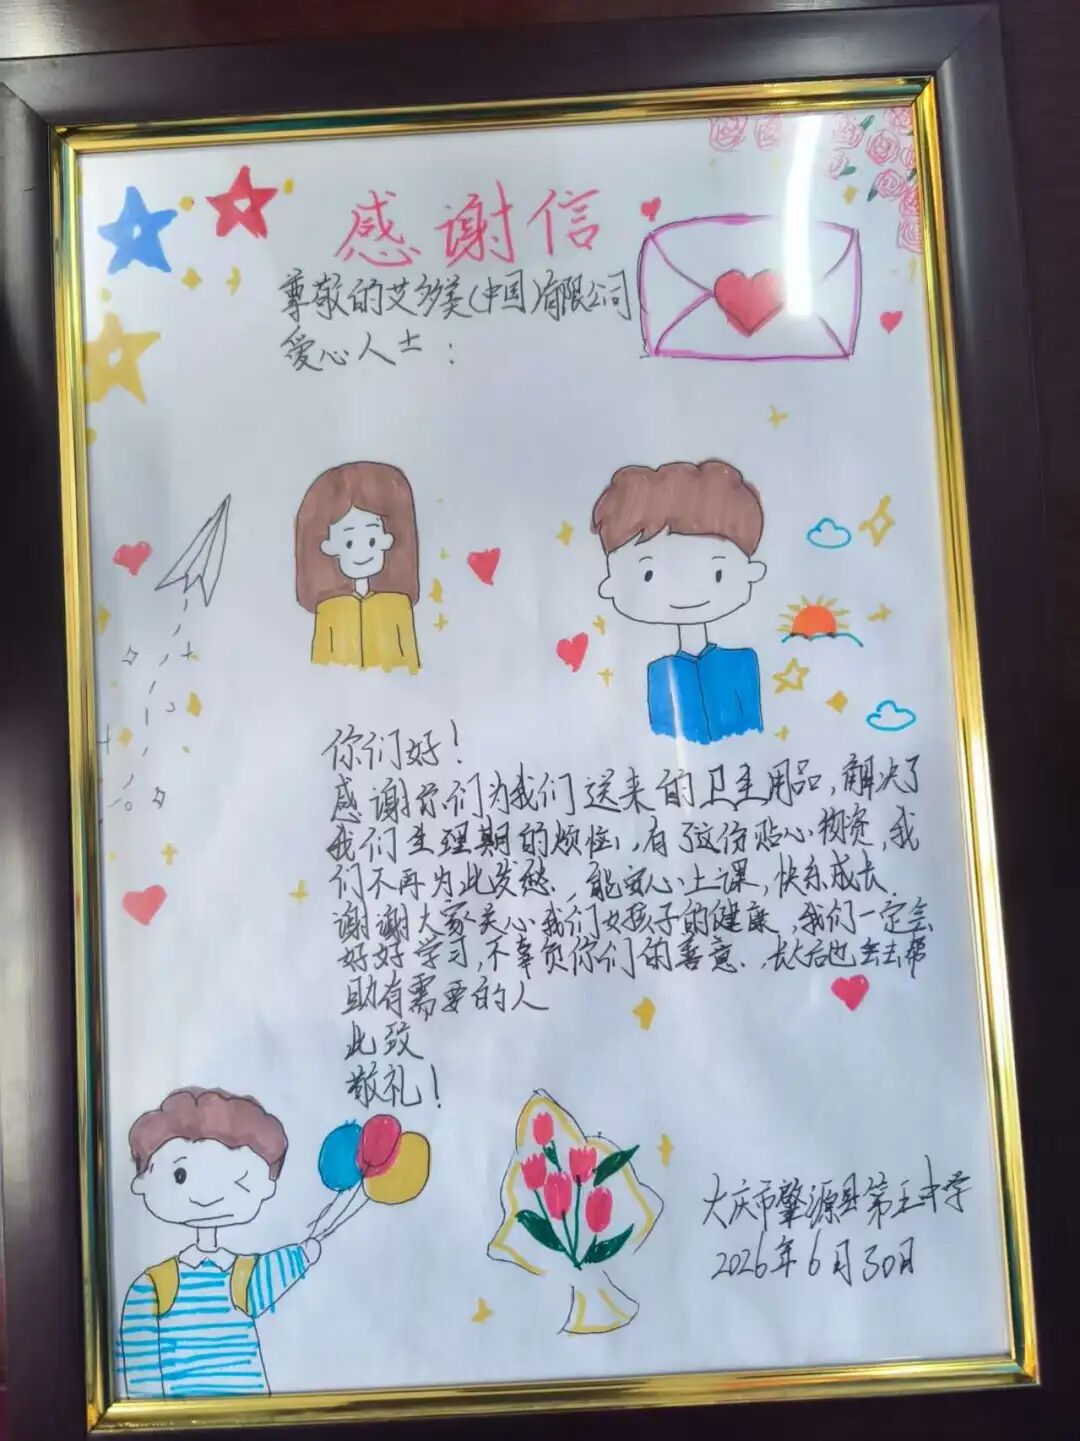 感谢信
尊敬的艾多美(中国)有限公司
爱心人士：
你们好！
感谢你们为我们送来的卫生用品,解决了
我们生理期的烦恼,有了这份贴心物资,我
们不再为此发愁,能安心上课,快乐成长.
谢谢大家关心我们女孩子的健康,我们一定会
好好学习,不辜负你们的善意.,长大后也去去帮
助有需要的人
此致
敬礼!
大庆市肇源县第五中学
2026年6月30日